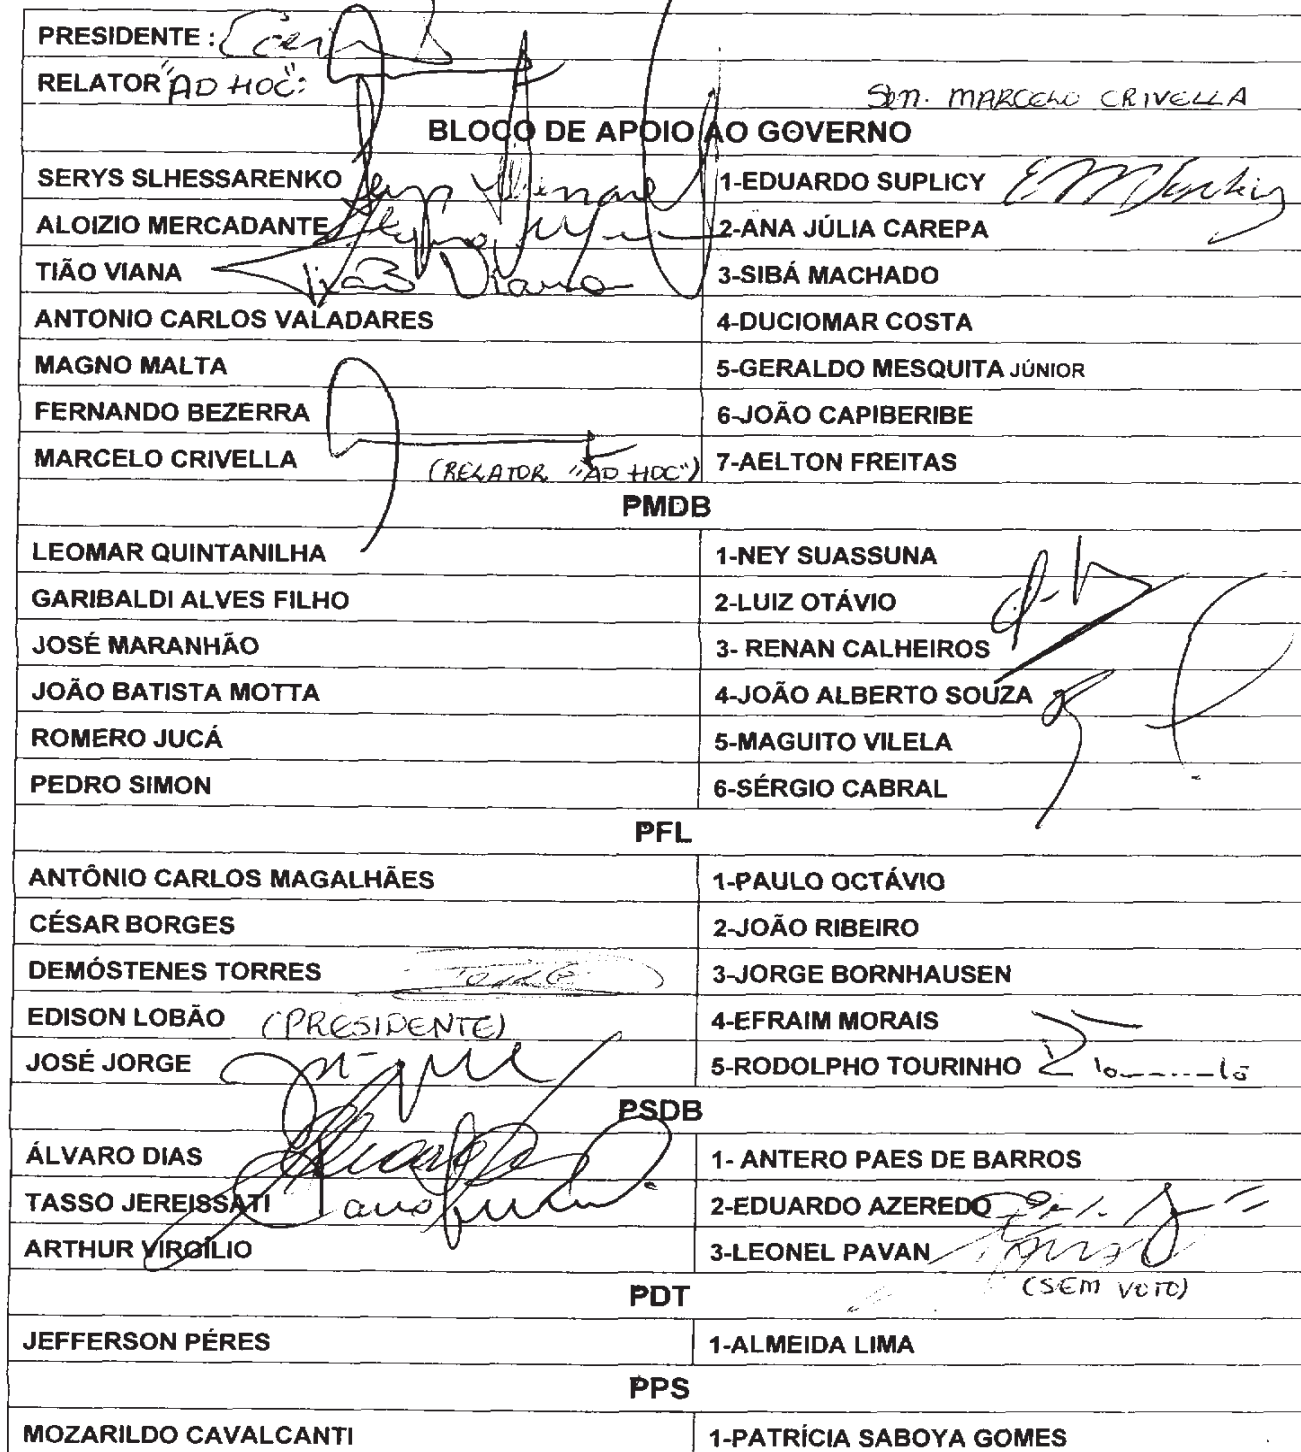 PRESIDENTE :
RELATOR "AD HOC": SEN. MARCELO CRIVELLA
BLOCO DE APOIO AO GOVERNO
SERYS SLHESSARENKO 1-EDUARDO SUPLICY
ALOIZIO MERCADANTE 2-ANA JÚLIA CAREPA
TIÃO VIANA Tião Viana 3-SIBÁ MACHADO
ANTONIO CARLOS VALADARES 4-DUCIOMAR COSTA
MAGNO MALTA 5-GERALDO MESQUITA JÚNIOR
FERNANDO BEZERRA 6-JOÃO CAPIBERIBE
MARCELO CRIVELLA (RELATOR "AD HOC") 7-AELTON FREITAS
PMDB
LEOMAR QUINTANILHA 1-NEY SUASSUNA
GARIBALDI ALVES FILHO 2-LUIZ OTÁVIO
JOSÉ MARANHÃO 3- RENAN CALHEIROS
JOÃO BATISTA MOTTA 4-JOÃO ALBERTO SOUZA
ROMERO JUCÁ 5-MAGUITO VILELA
PEDRO SIMON 6-SÉRGIO CABRAL
PFL
ANTÔNIO CARLOS MAGALHÃES 1-PAULO OCTÁVIO
CÉSAR BORGES 2-JOÃO RIBEIRO
DEMÓSTENES TORRES 3-JORGE BORNHAUSEN
EDISON LOBÃO (PRESIDENTE) 4-EFRAIM MORAIS
JOSÉ JORGE 5-RODOLPHO TOURINHO
PSDB
ÁLVARO DIAS 1- ANTERO PAES DE BARROS
TASSO JEREISSATI 2-EDUARDO AZEREDO
ARTHUR VIRGÍLIO 3-LEONEL PAVAN
(SEM VOTO)
PDT
JEFFERSON PÉRES 1-ALMEIDA LIMA
PPS
MOZARILDO CAVALCANTI 1-PATRÍCIA SABOYA GOMES